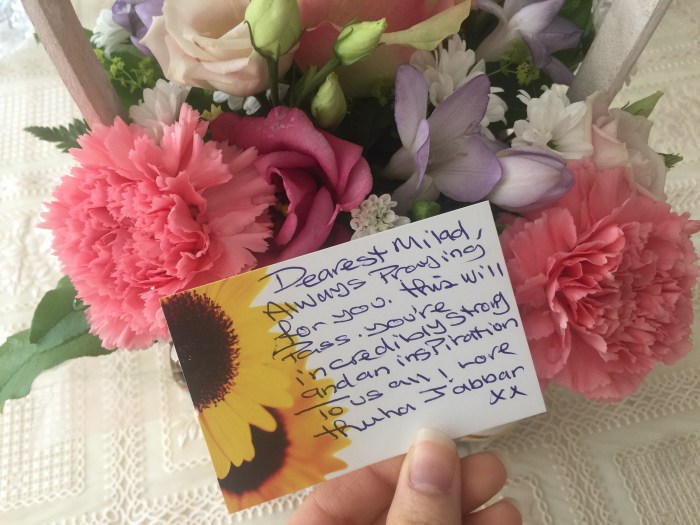 Dearest Milad,
Always Praying
for you. this will
Pass. you're
incredibly strong
and an inspiration
To us all! Love
thuha Jabbar
xx